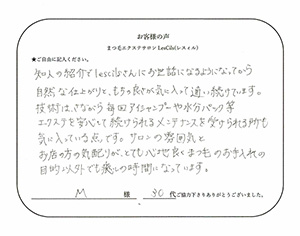 お客様の声
まつ毛エクステサロン LesCils(レスィル)
★ご自由に記入ください。
知人の紹介でlescilsさんにお世話になるようになってから
自然な仕上がりと、もちの良さが気に入って通い続けています。
技術はさながら毎回アイシャンプーや水分パック等
エクステを安心して続けられるメンテナンスを受けられる所も
気に入っている点です。サロンの雰囲気と
お店の方の気配りが、とても心地良くまつ毛のお手入れの
目的以外でも癒しの時間になっています。
M 様 30 代ご協力下さりありがとうございました。